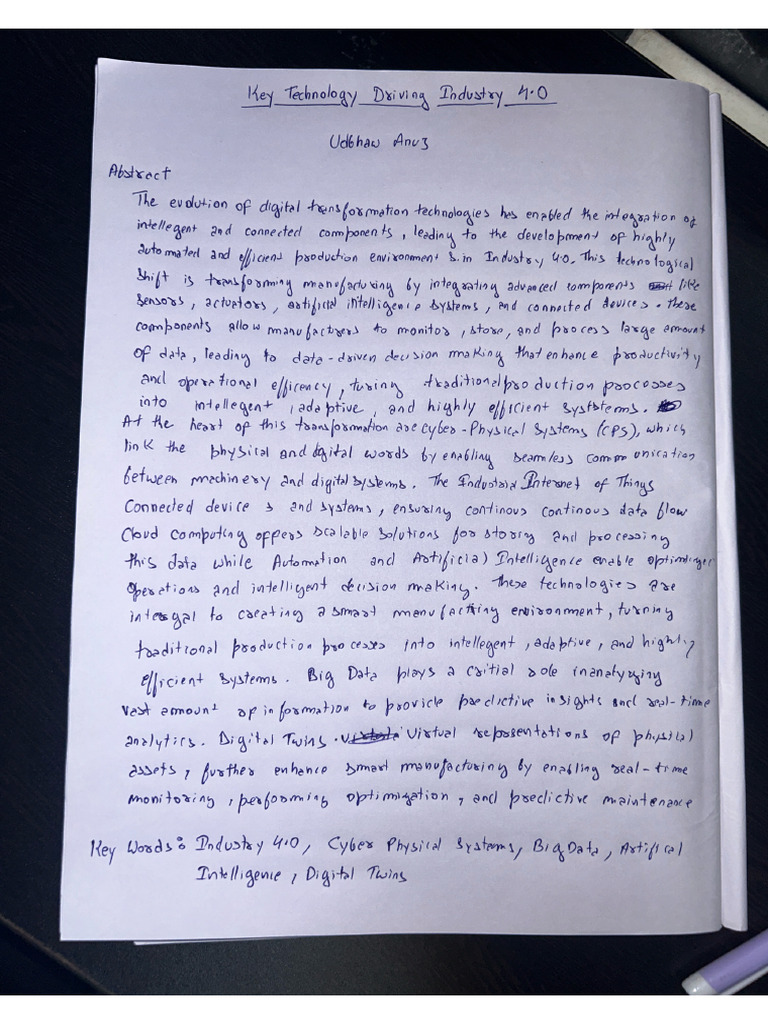 Key Technology Driving Industry 4.0
Udbhaw Anuj
Abstract
The evolution of digital transformation technologies has enabled the integration of
intellegent and connected components, leading to the development of highly
automated and efficient production environment s.in Industry 4.0. This technological
shift is transforming manufacturing by integrating advanced components like
sensors, actuators, artificial intelligence systems, and connected devices. These
components allow manufacturers to monitor, store, and process large amount
of data, leading to data-driven decision making that enhance productivity
and operational efficency, turing traditional production processes
into intellegent, adaptive, and highly efficient syststems.
At the heart of this transformation are cyber-Physical Systems (CPS), which
link the physical and digital words by enabling seamless communication
between machinery and digital systems. The Internet of Things
Connected device s and systems, ensuring continous continous data flow
Cloud computing offers scalable solutions for storing and processing
this data while Automation and Artificial Intelligence enable
operations and intelligent decision making. These technologies are
intergal to creating a smart manufacturing environment, turning
traditional production processes into intellegent, adaptive, and highly
efficient systems. Big Data plays a critial role in analyzing
vast amount of information to provide predictive insights and real-time
analytics. Digital Twins. virtual representations of physical
assets, further enhance smart manufacturing by enabling real-time
monitoring, performing optimization, and predictive maintenance
Key Words: Industry 4.0, Cyber Physical Systems, Big Data, Artifical
Intelligence, Digital Twins